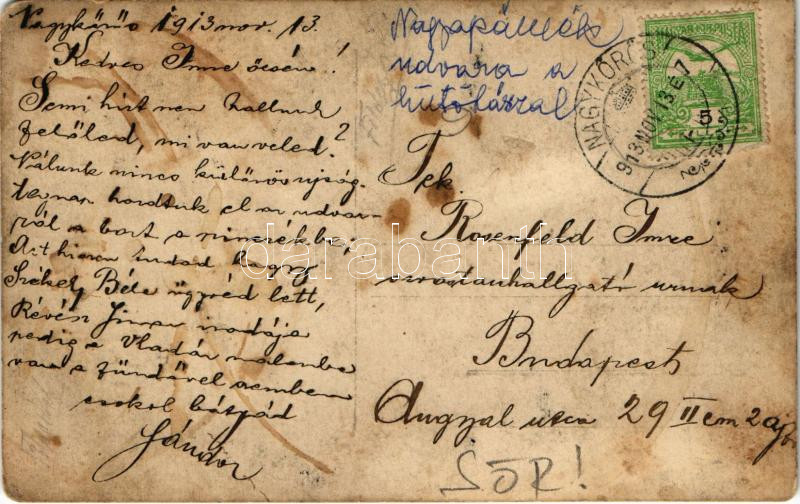 Nagykőrös 1913 nov. 13.
Kedves Imre öcsém!
Semi hirt nem hallunk
felőled, mi van veled?
Nálunk nincs különös ujság
hordtuk el az udvar-
ról a bort a pinczékbe;
Azt hiszem tudod hogy
Székely Béla ügyvéd lett,
Révész irodája
pedig a Vladár malomba
van a fürdővel szemben
csokol bátyád
Sándor
Nagyapámék
udvara a
hűtőházzal
NAGYKŐRÖS
913 NOV 13 E 7
5
Tek.
Rosenfeld Imre
orvostanhallgató urnak
Budapest
Angyal utca 29 II em 2 ajtó
SÖR!
darabanth